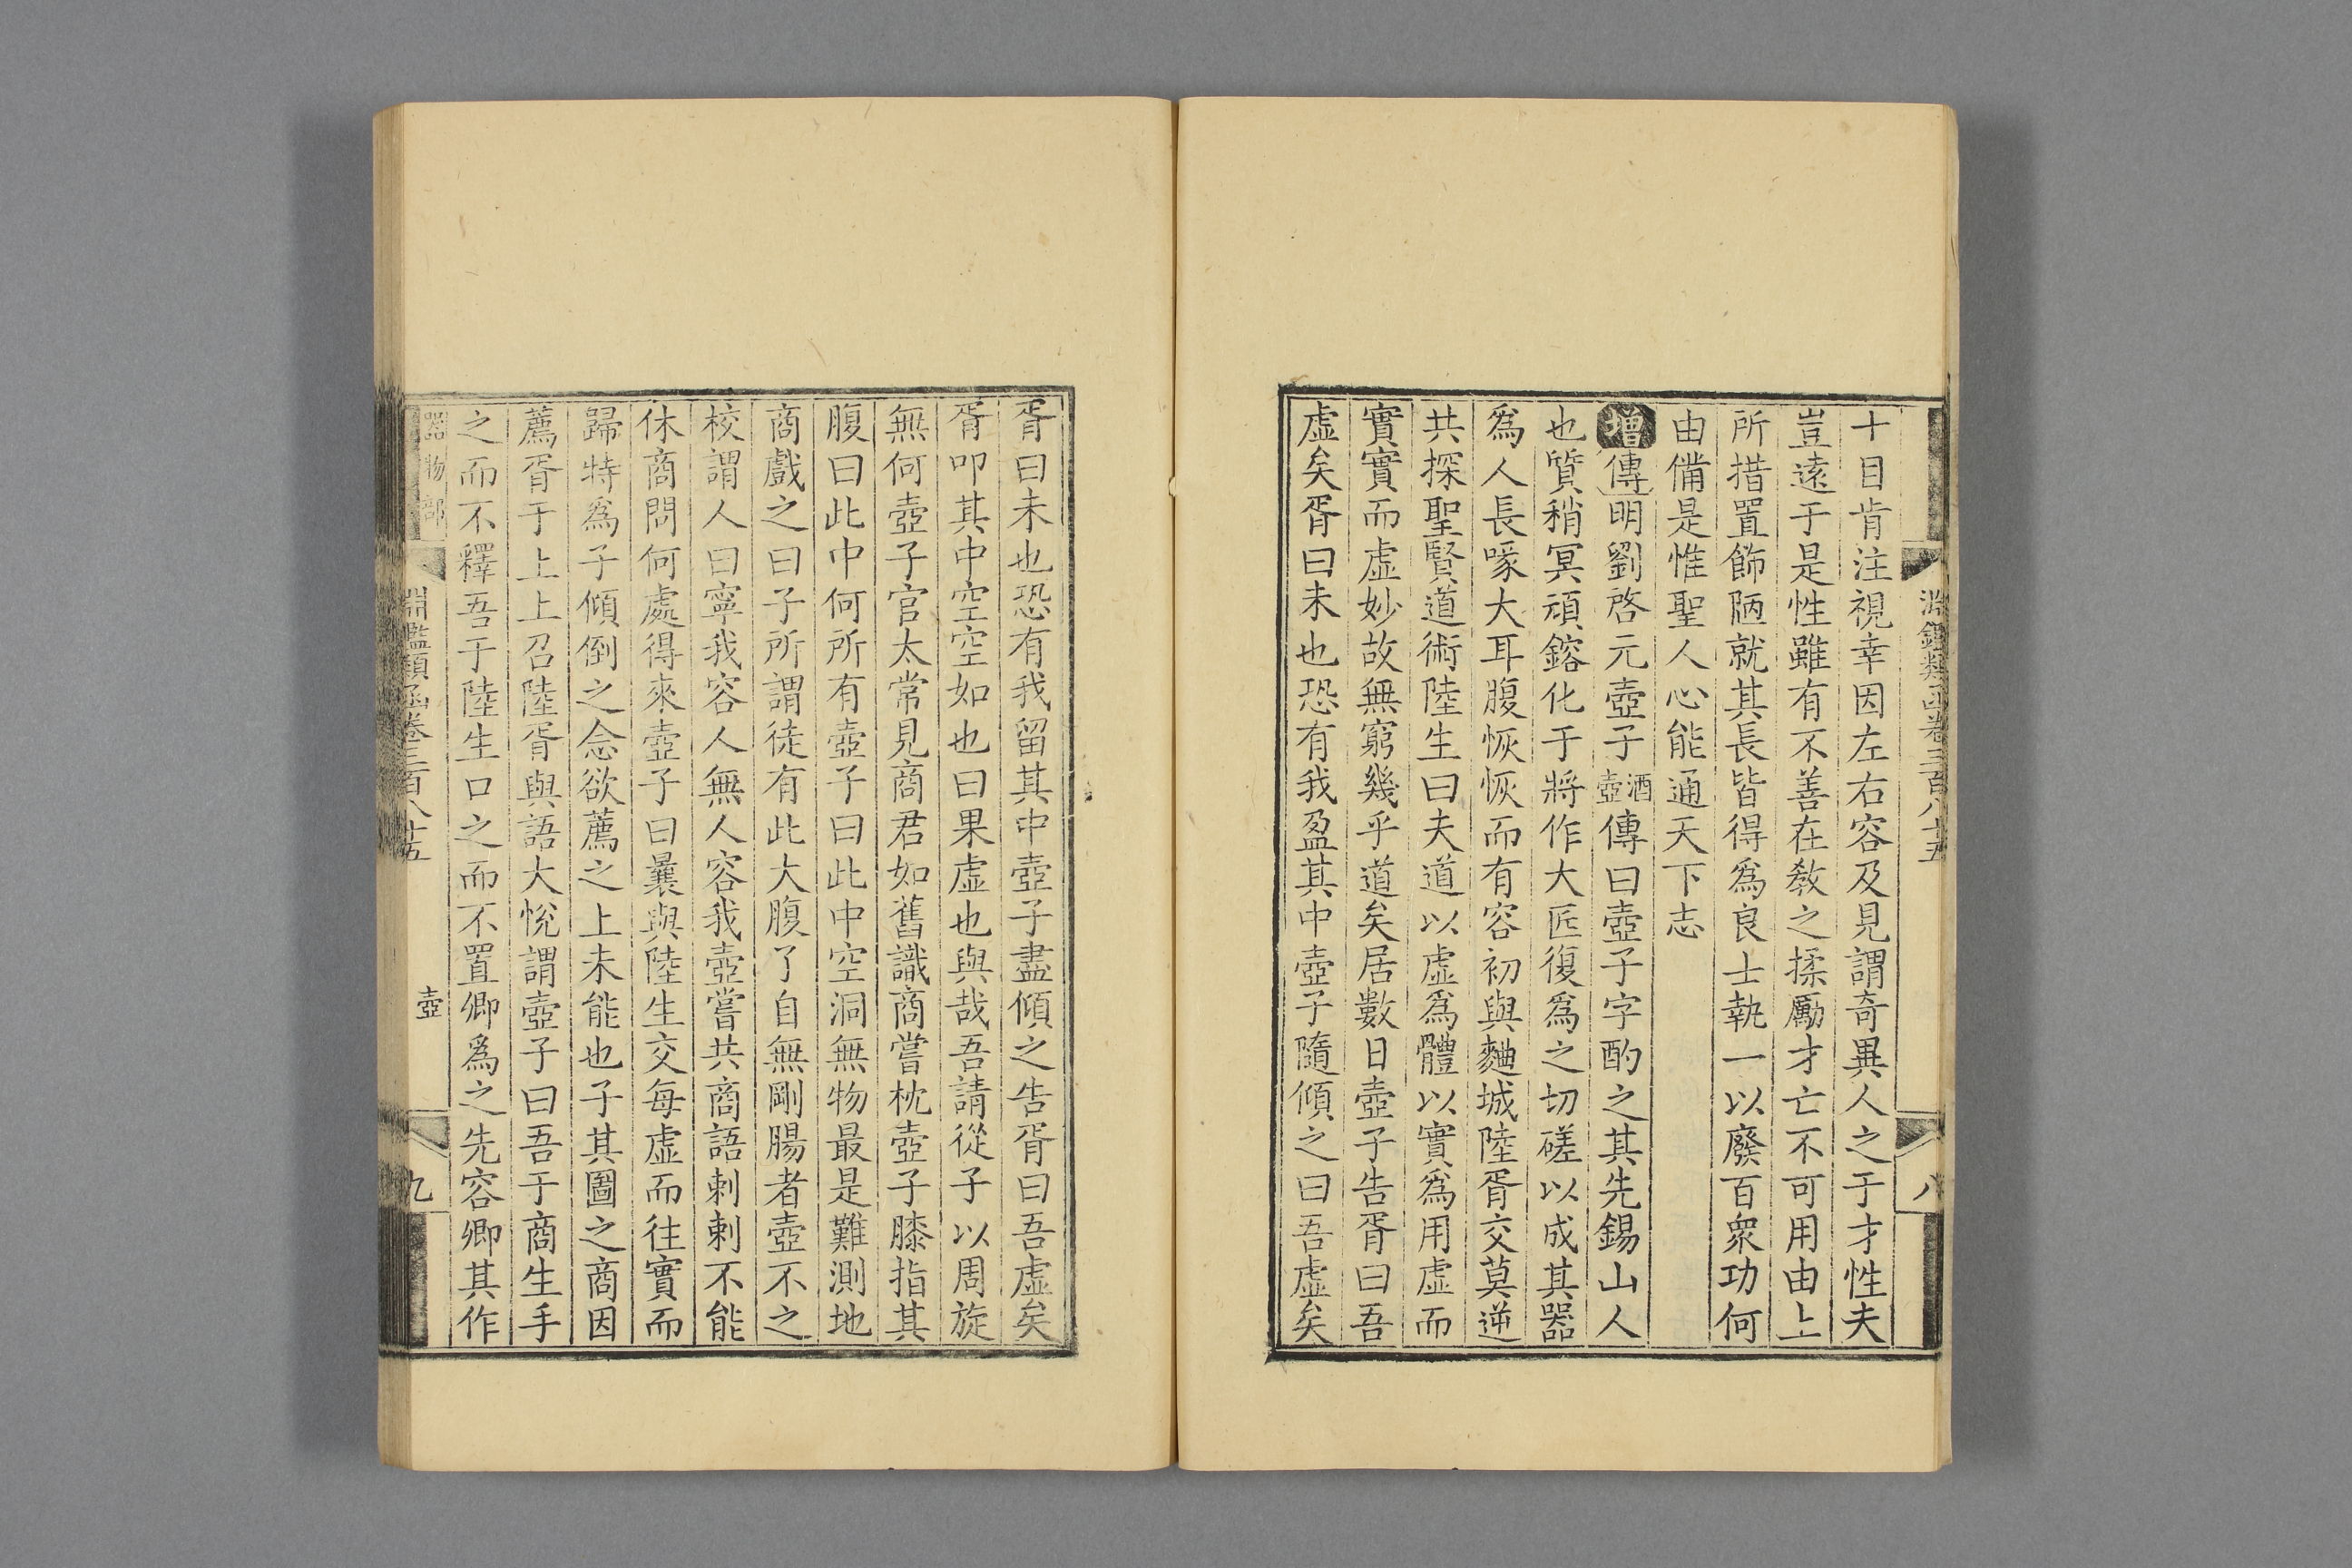 淵鑑類函卷三百八十五
八
十目肯注視幸因左右容及見謂奇異人之于才性夫
豈遠于是性雖有不善在教之揉勵才亡不可用由上
所措置飾陋就其長皆得爲良士執一以廢百衆功何
由備是惟聖人心能通天下志
增傳明劉啓元壺子酒壺傳曰壺子字酌之其先錫山人
也質稍冥頑鎔化于將作大匠復爲之切磋以成其器
爲人長喙大耳腹恢恢而有容初與麯城陸胥交莫逆
共探聖賢道術陸生曰夫道以虛爲體以實爲用虛而
實實而虛妙故無窮幾乎道矣居數日壺子告胥曰吾
虛矣胥曰未也恐有我盈其中壺子隨傾之曰吾虛矣
胥曰未也恐有我留其中壺子盡傾之告胥曰吾虛矣
胥叩其中空空如也曰果虛也與哉吾請從子以周旋
無何壺子官太常見商君如舊識商嘗枕壺子膝指其
腹曰此中何所有壺子曰此中空洞無物最是難測地
商戲之曰子所謂徒有此大腹了自無剛腸者壺不之
校謂人曰寧我容人無人容我壺嘗共商語剌剌不能
休商問何處得來壺子曰曩與陸生交每虛而往實而
歸特爲子傾倒之念欲薦之上未能也子其圖之商因
薦胥于上上召陸胥與語大悅謂壺子曰吾于商生手
之而不釋吾于陸生口之而不置卿爲之先容卿其作
器物部
淵鑑類函卷三百八十五
壺
九